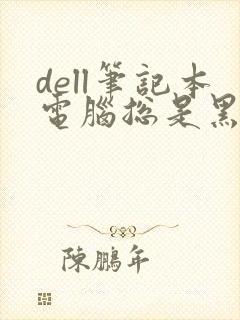 dell筆記本
電腦總是黑
陳鵬年